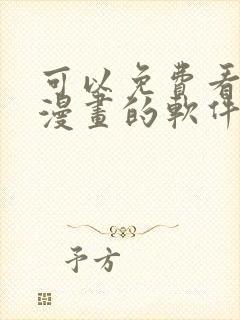 可以免費看
漫畫的軟件
予方